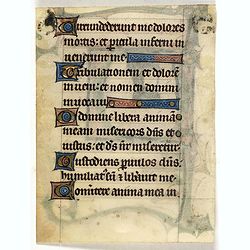 Circundederunt me dolores
mortis: et pericula inferni in
uenerunt me
Tribulationem et dolorē
inueni: et nomen domini
inuocaui
O domine libera animā
meam misericors dn̄s et
iustus: et ds̄ nr̄ miseretur
Custodiens paruulos dn̄s:
humiliatus sum et liberauit me
Conuertere anima mea in